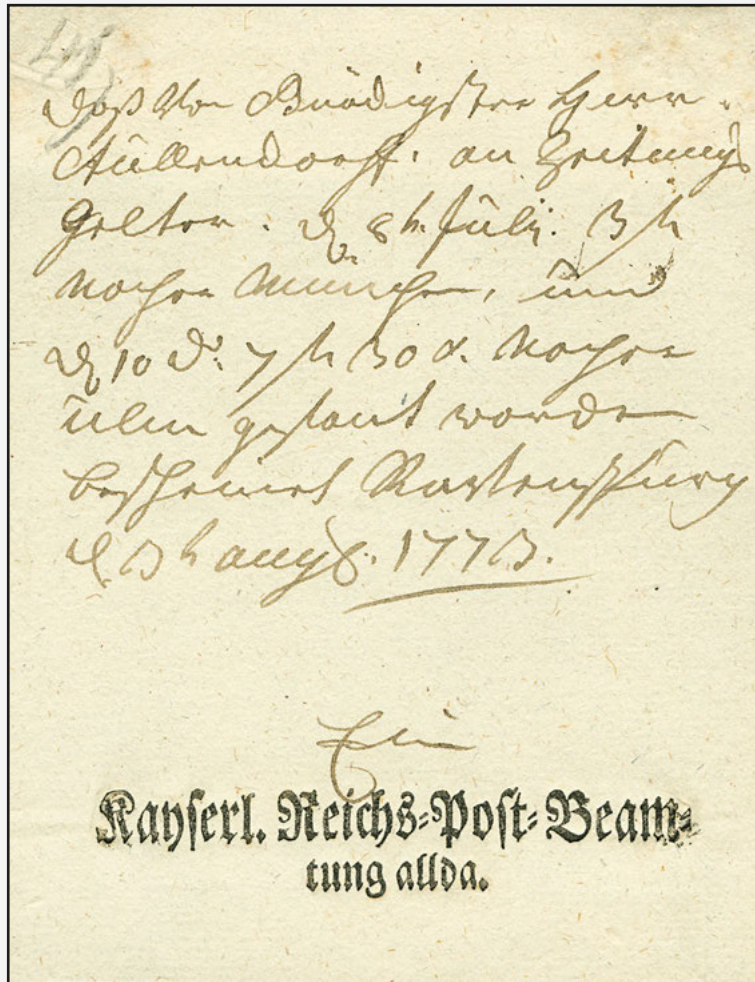 daß von Gnädigster Herr
Aullendorff. an Zeitungs
Gelter. d. 8t. Julÿ. 3 fl
nacher München, und
d. 10 dº. 7 fl 30 x. nacher
Ulm gesant worden
bescheinet
d. 3t aug. 1773.
Ein
Kayserl. Reichs-Post-Beam-
tung allda.